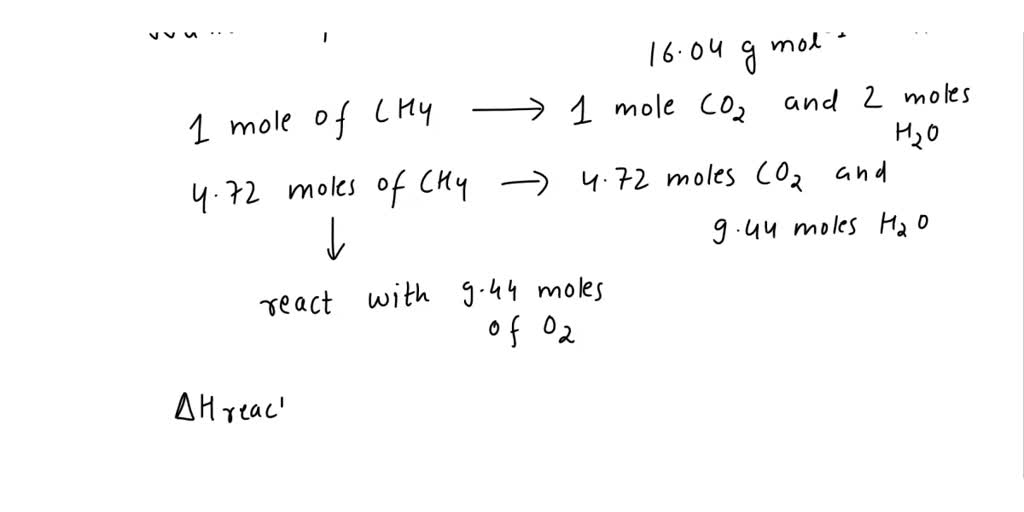 16.04 g mol⁻¹
1 mole of CH4 → 1 mole CO2 and 2 moles
H2O
4.72 moles of CH4 → 4.72 moles CO2 and
9.44 moles H2O
↓
react with 9.44 moles
of O2
ΔHreac